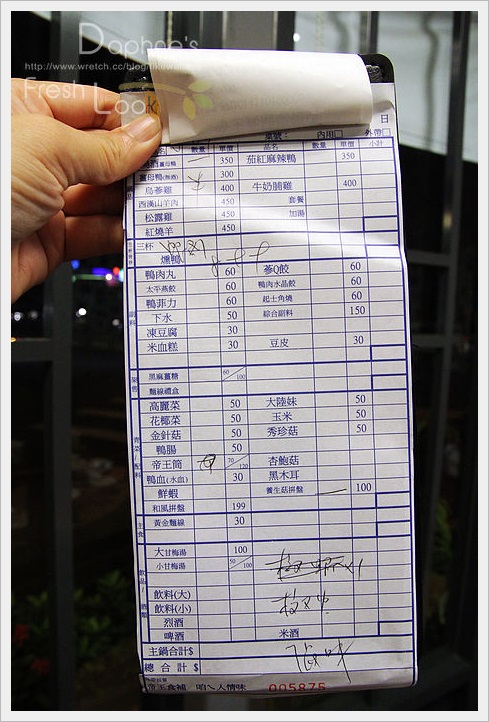 Daphne's
http://www.wretch.cc/blog/
Fresh Look
日
內用□ 外帶□
數量 單價 品名 數量 單價 小計
薑母鴨 一 350 茄紅麻辣鴨 350
薑母鴨(無酒) 300
烏蔘雞 400 牛奶脯雞 400
西漢山羊肉 450 套餐
松露雞 450 加湯
紅燒羊 450
三杯
燻鴨
鴨肉丸 60 蔘Q餃 60
太平燕餃 60 鴨肉水晶餃 60
鴨菲力 60 起士角燒 60
下水 50 綜合副料 150
凍豆腐 30
米血糕 30 豆皮 30
黑麻薑糖 60/100
麵線禮盒
高麗菜 50 大陸妹 50
花椰菜 50 玉米 50
金針菇 50 秀珍菇 50
鴨腸 50
帝王筒 70/120 杏鮑菇
鴨血(水血) 30 黑木耳
鮮蝦 養生菇拼盤 一 100
和風拼盤 199
黃金麵線 30
大甘梅湯 100
小甘梅湯 50/100
飲料(大)
飲料(小)
烈酒
啤酒 米酒
主鍋合計$
總合計$
帝王食補 咱ㄟ人情味 005875